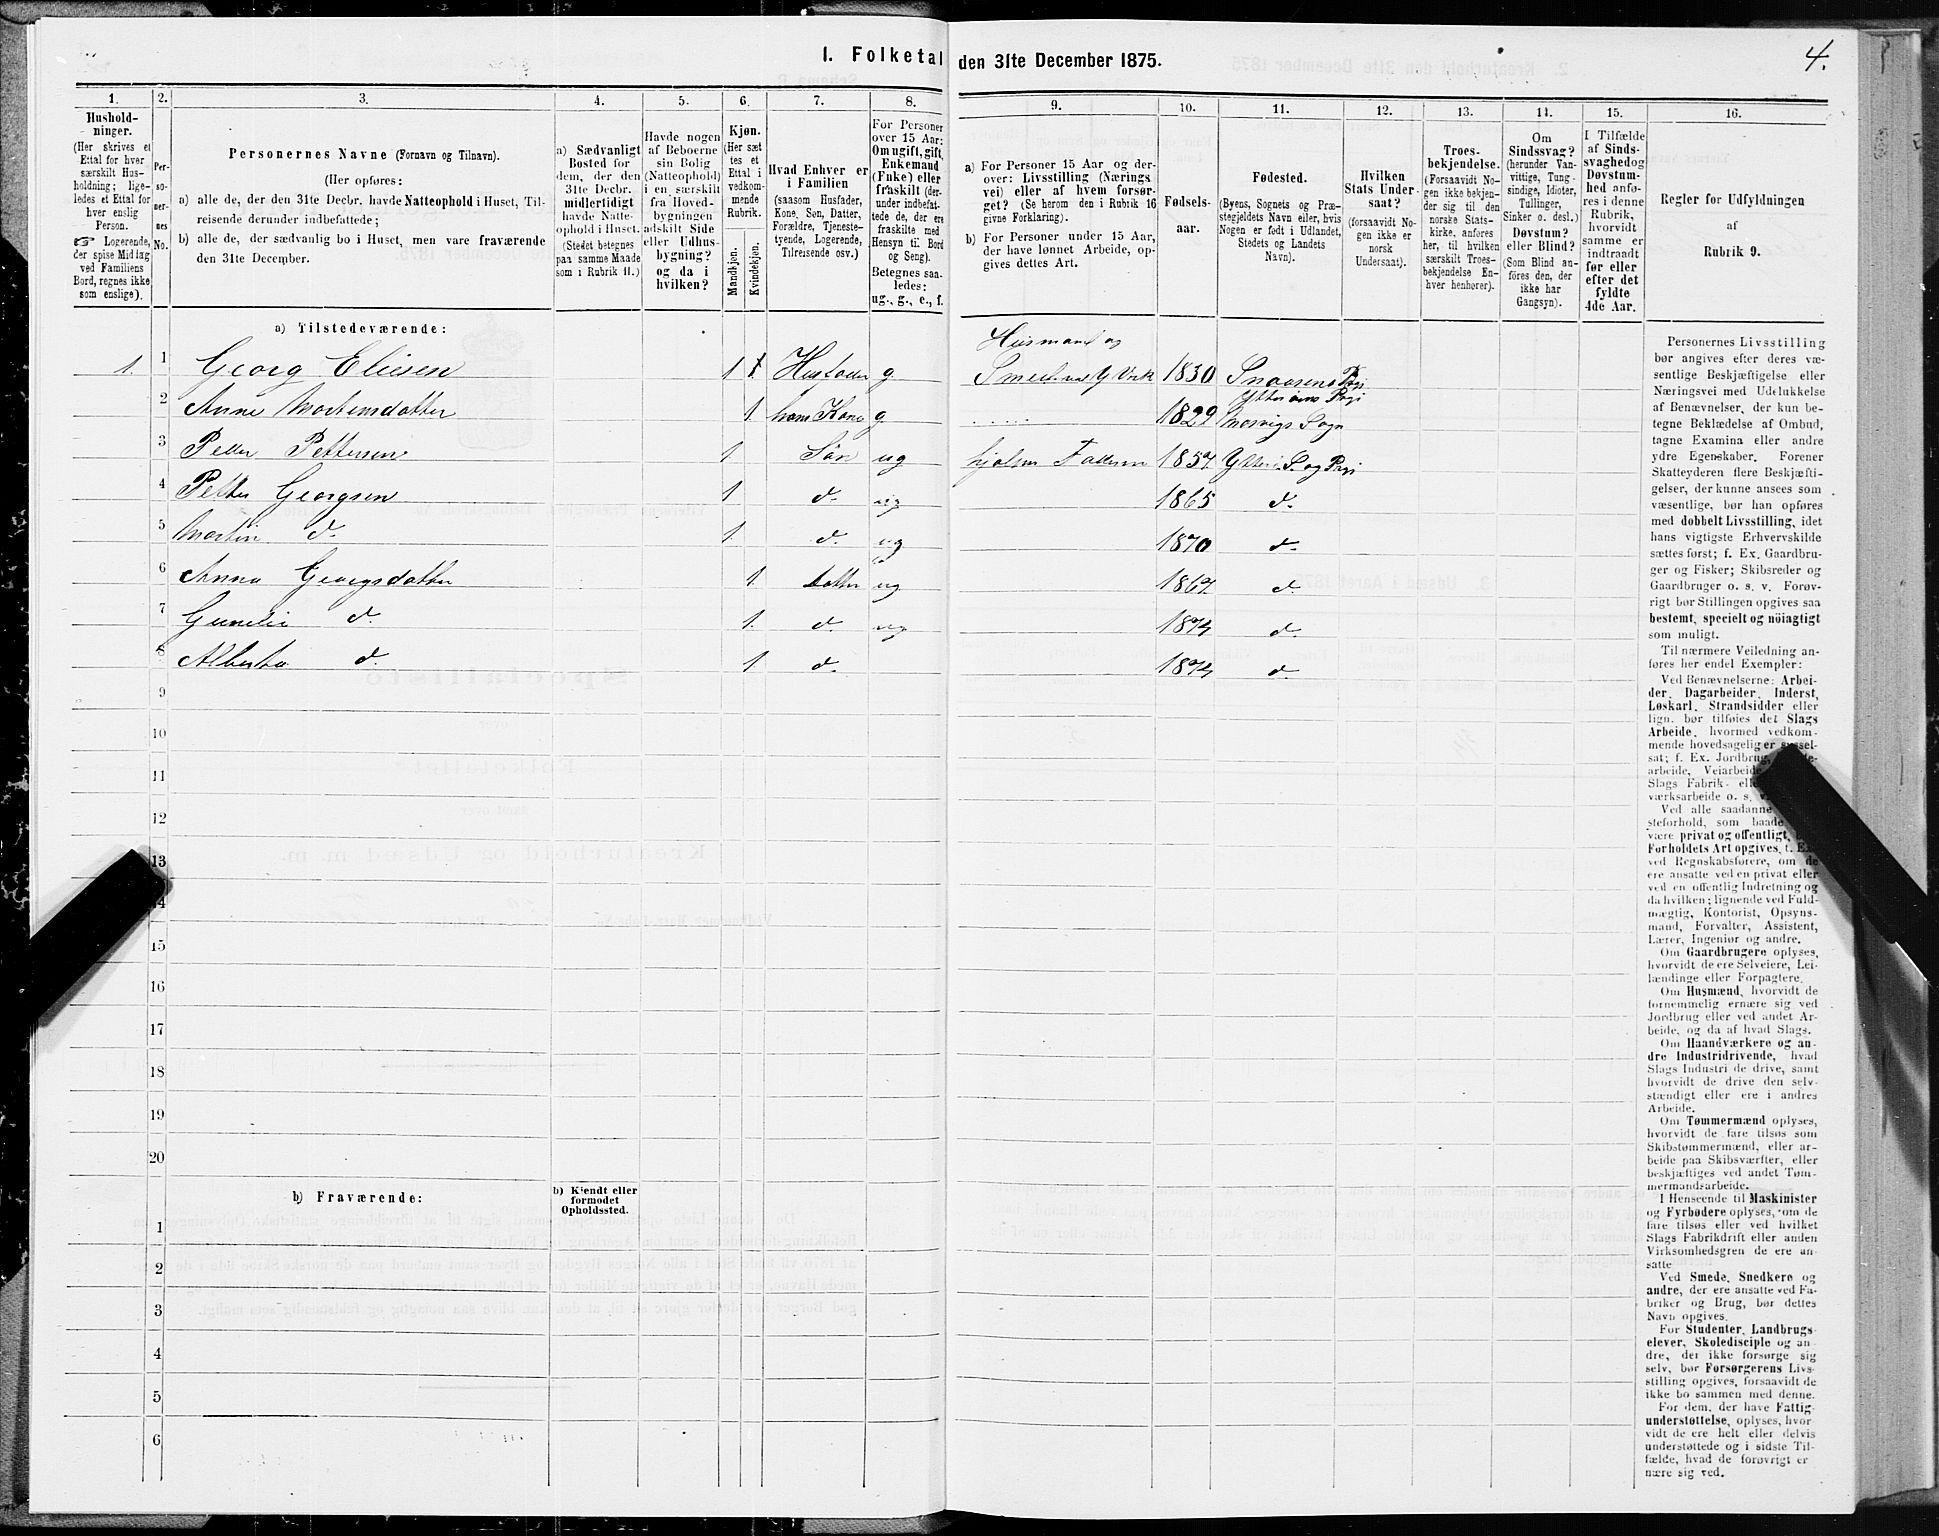 I. Folketal den 31te December 1875.
4.
1. 2. 3. 4. 5. 6. 7. 8. 9. 10. 11. 12. 13. 14. 15. 16.
Hushold-
ninger.
(Her skrives et
Ettal for hver
særskilt Hus-
holdning; lige-
ledes et Ettal for
hver enslig
Person.
☞ Logerende,
der spise Middag
ved Familiens
Bord, regnes ikke
som enslige).
Per-
so-
ner-
nes
No.
Personernes Navne (Fornavn og Tilnavn).
(Her opføres:
a) alle de, der den 31te Decbr. havde Natteophold i Huset, Til-
reisende derunder indbefattede;
b) alle de, der sædvanlig bo i Huset, men vare fraværende
den 31te December.
a) Sædvanligt
Bosted for
dem, der den
31te Decbr.
midlertidigt
havde Natte-
ophold i Huset.
(Stedet betegnes
paa samme Maade
som i Rubrik 11.)
Havde nogen
af Beboerne
sin Bolig
(Natteophold)
i en særskilt
fra Hoved-
bygningen
adskilt Side
eller Udhus-
bygning?
og da i
hvilken?
Kjøn.
(Her sæt
tes et
Ettal i
vedkom-
mende
Rubrik.
Mandkjøn.
Kvindekjøn.
Hvad Enhver er
i Familien
(saasom Husfader,
Kone, Søn, Datter,
Forældre, Tjeneste-
tyende, Logerende,
Tilreisende osv.)
For Personer
over 15 Aar:
Om ugift, gift,
Enkemand
(Enke) eller
fraskilt (der-
under indbefat-
tede de, der ere
fraskilte med
Hensyn til Bord
og Seng).
Betegnes saa-
ledes:
ug., g., e., f.
a) For Personer 15 Aar og der-
over: Livsstilling (Nærings
vei) eller af hvem forsør-
get? (Se herom den i Rubrik 16
givne Forklaring).
b) For Personer under 15 Aar,
der have lønnet Arbeide, op-
gives dettes Art.
Fødsels-
aar.
Fødested.
(Byens, Sognets og Præ-
stegjeldets Navn eller, hvis
Nogen er født i Udlandet,
Stedets og Landets
Navn).
Hvilken
Stats Under-
saat?
(forsaavidt No-
gen ikke er
norsk
Undersaat).
Troes-
bekjendelse.
(Forsaavidt No-
gen ikke bekjen-
der sig til den
norske Stats-
kirke, anføres
her, til hvilken
særskilt Troes-
bekjendelse En-
hver henhører).
Om
Sindssvag?
(herunder Van-
vittige, Tung-
sindige, Idioter,
Tullinger,
Sinker o. desl.)
Døvstum?
eller Blind?
(Som Blind an-
føres den, der
ikke har
Gangsyn).
I Tilfælde
af Sinds-
svaghed og
Døvstum-
hed anfø-
res i denne
Rubrik,
hvorvidt
samme er
indtraadt
før eller
efter det
fyldte
4de Aar.
Regler for Udfyldningen
af
Rubrik 9.
a) Tilstedeværende:
Husmand og
1. 1 Georg Eliesen 1 Husfader g 1830 Snaasens Prgj
2 Anne Mortensdatter 1 hans Kone g 1829 Sogn
3 Peder Pettersen 1 Søn ug hjælper Faderen 1857 Ytterø S. og Prgj
4 Petter Georgsen 1 d. ug 1865 d.
5 Martin d. 1. d. ug 1870 d.
6 Anna Georgsdatter 1. datter ug 1867 d.
7 d. 1. d. ug 1874 d.
8 Alberta d. 1 d. 1874 d.
9
10
11
12
13
14
15
16
17
18
19
20
b) Fraværende:
b) Kjendt eller
formodet
Opholdssted.
1
2
3
4
5
6
Personernes Livsstilling
bør angives efter deres væ-
sentlige Beskjæftigelse eller
Næringsvei med Udelukkelse
af Benævnelser, der kun be-
tegne Beklædelse af Ombud,
tagne Examina eller andre
ydre Egenskaber. Forener
Skatteyderen flere Beskjæfti-
gelser, der kunne ansees som
væsentlige, bør han opføres
med dobbelt Livsstilling, idet
hans vigtigste Erhvervskilde
sættes først; f. Ex. Gaardbru-
ger og Fisker; Skibsreder og
Gaardbruger o. s. v. Forøv-
rigt bør Stillingen opgives saa
bestemt, specielt og nöiagtigt
som muligt.
Til nærmere Veiledning an-
føres her endel Exempler:
Ved Benævnelserne: Arbei-
der, Dagarbeider, Inderst,
Løskarl, Strandsidder eller
lign. bør tilføies det Slags
Arbeide, hvormed vedkom-
mende hovedsagelig er syssel-
sat; f. Ex. Jordbrug,
arbeide, Veiarbeide
Slags Fabrik-
værksarbeide o. s. v.
Ved alle saadanne
steforhold, som baade
være privat og offentligt,
Forholdets Art opgives, f. Ex.
ved Regnskabsførere, om de
ere ansatte ved en privat eller
ved en offentlig Indretning og
da hvilken; lignende ved Fuld-
mægtig, Kontorist, Opsyns-
mand, Forvalter, Assistent,
Lærer, Ingeniør og andre.
Om Gaardbrugere oplyses,
hvorvidt de ere Selveiere, Lei-
lændinge eller Forpagtere.
Om Husmænd, hvorvidt de
fornemmelig ernære sig ved
Jordbrug eller ved andet Ar-
beide, og da af hvad Slags.
Om Haandværkere og an-
dre Industridrivende, hvad
Slags Industri de drive, samt
hvorvidt de drive den selv-
stændigt eller ere i andres
Arbeide.
Om Tømmermænd oplyses,
hvorvidt de fare tilsøs som
Skibstømmermænd, eller ar-
beide paa Skibsværfter, eller
beskjæftiges ved andet Tøm-
mermandsarbeide.
I Henseende til Maskinister
og Fyrbødere oplyses, om de
fare tilsøs eller ved hvilket
Slags Fabrikdrift eller anden
Virksomhedsgren de ere an-
satte
Ved Smede, Snedkere og
andre, der ere ansatte ved Fa-
briker og Brug, bør dettes
Navn opgives.
For Studenter, Landbrugs-
elever, Skoledisciple og an-
dre, der ikke forsørge sig
selv, bør Forsørgerens Livs-
stilling opgives, forsaavidt de
ikke bo sammen med denne.
For dem, der have Fattig-
understøttelse, oplyses, hvor-
vidt de ere helt eller delvis
understøttede og i sidste Til-
fælde, hvad de forøvrigt er
nære sig ved.